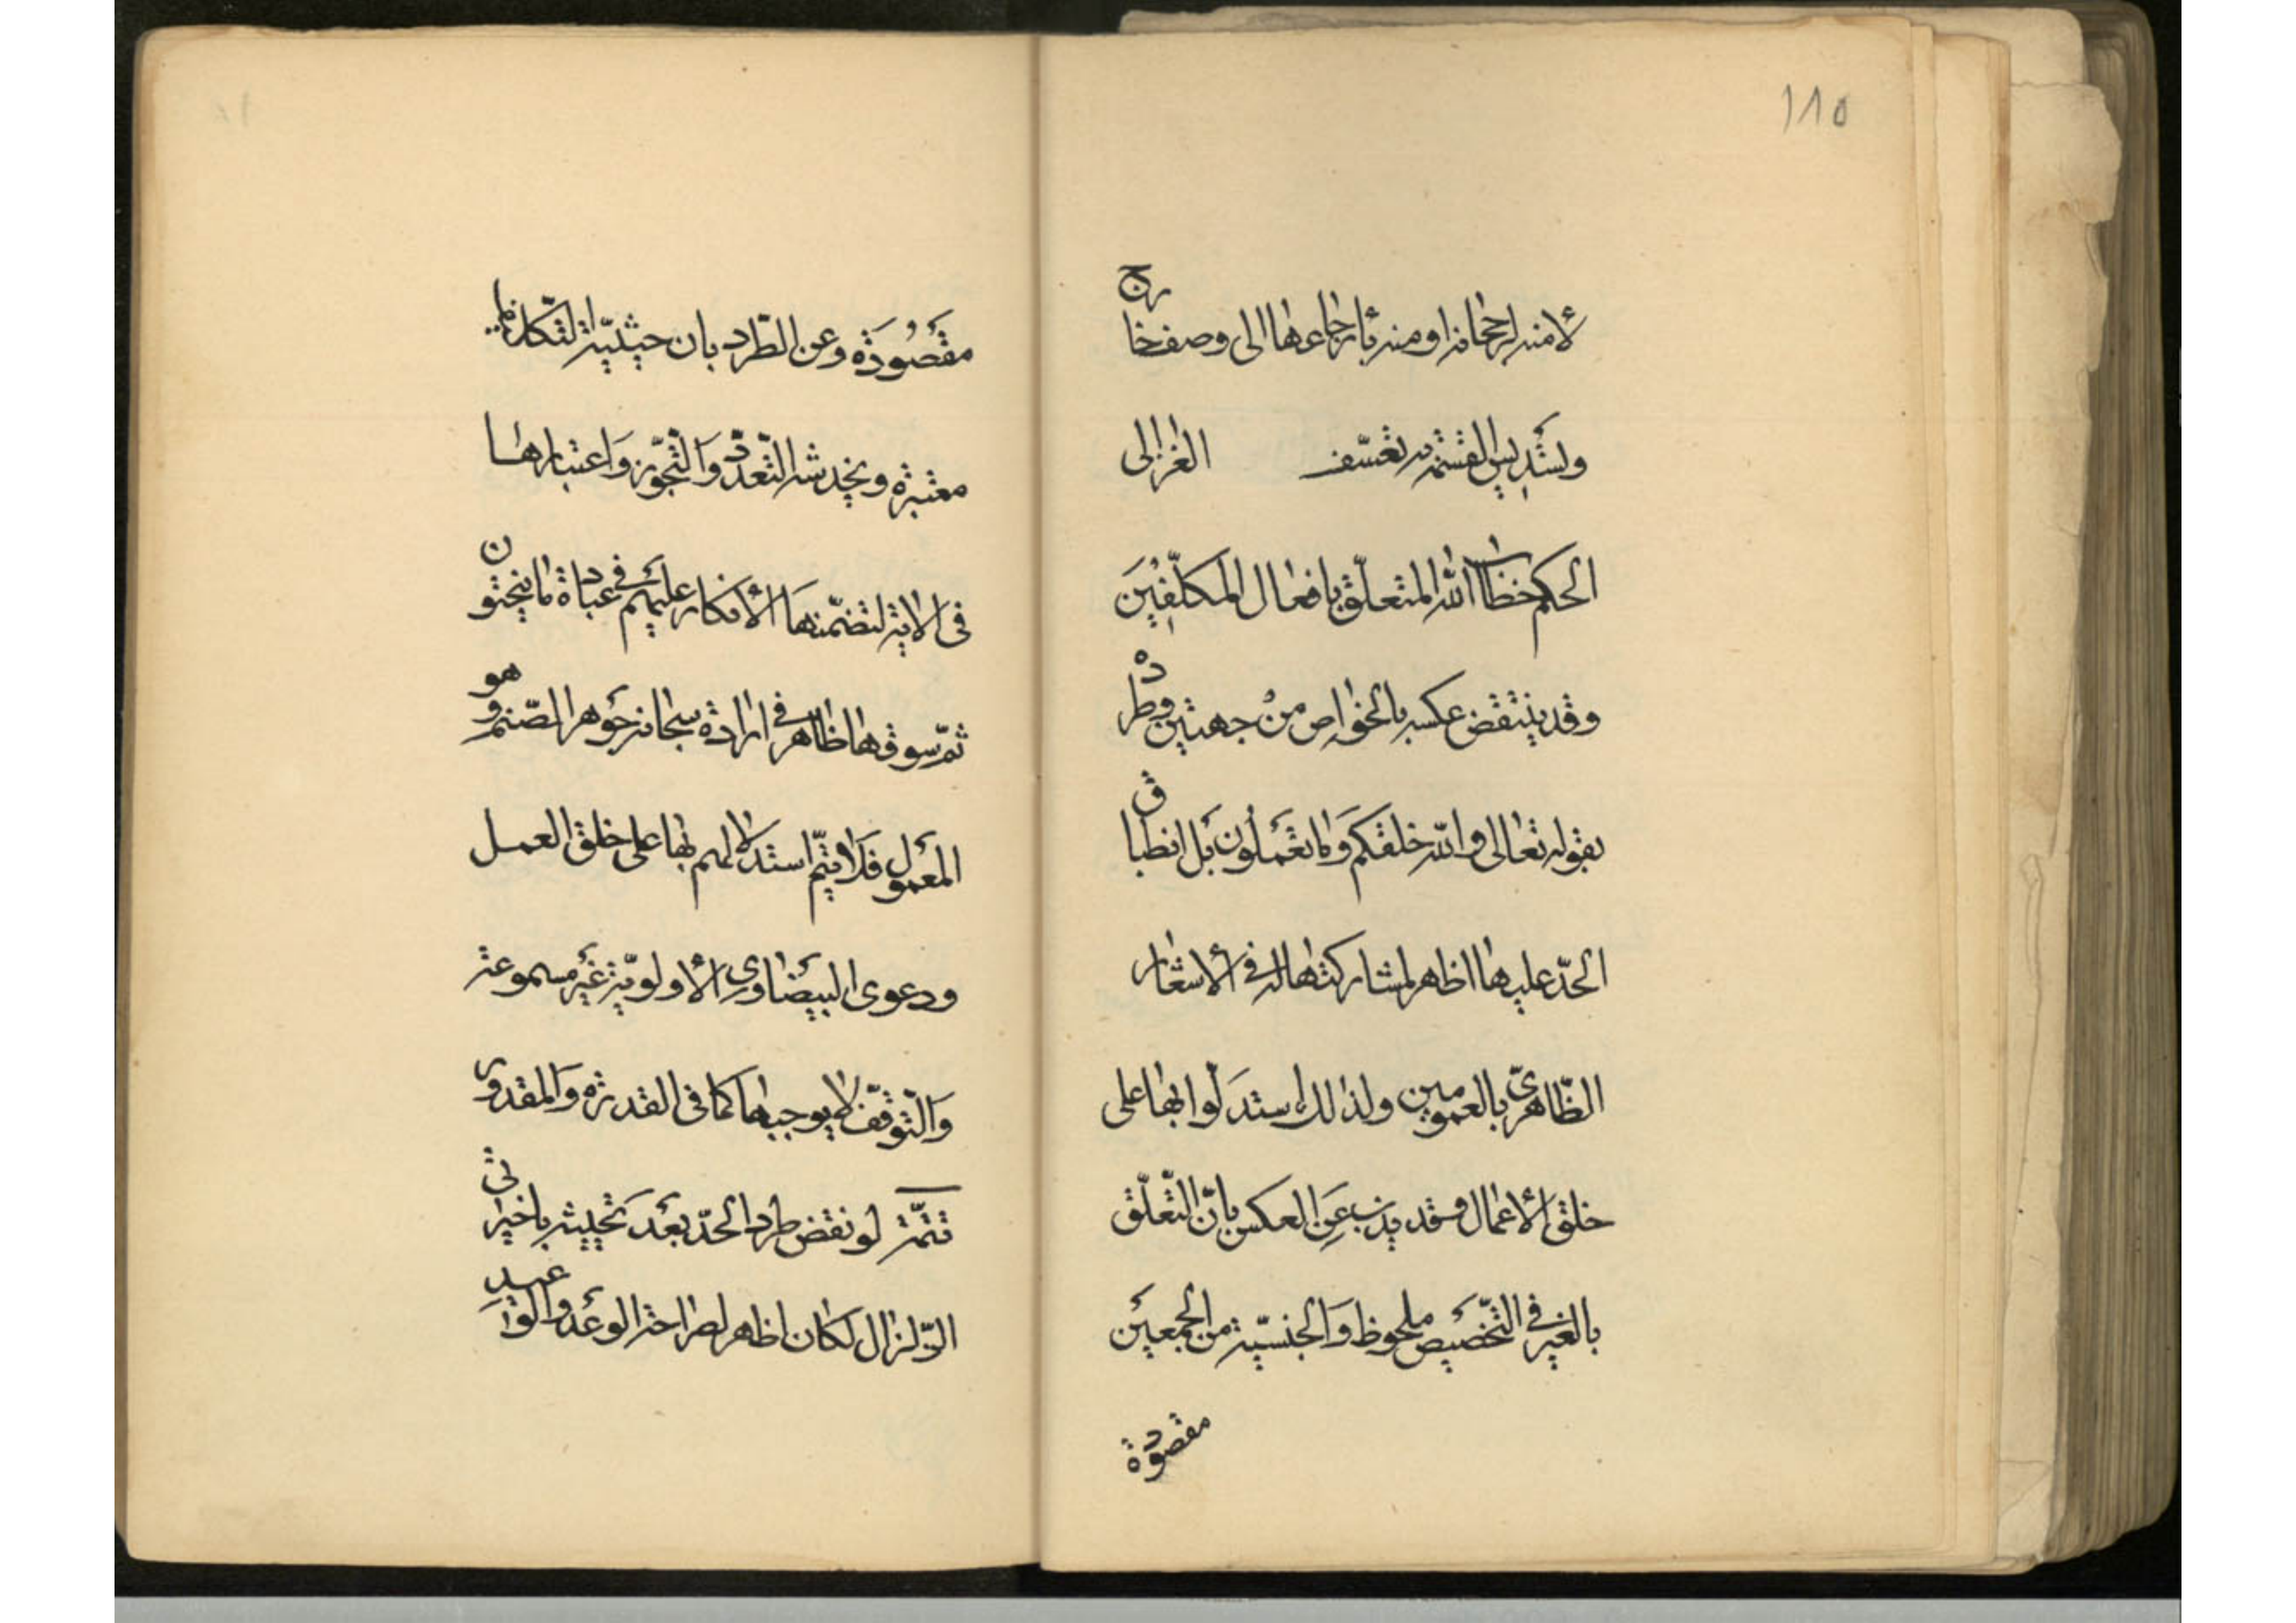 ١٨٥
لامنه لرجحانه او منه بارجاعها الى وصف خارج
وتسديس القسمة تعسف الغزالى
الحكم خطاب الله المتعلق بافعال المكلّفين
وقد ينتقض عكسه بالخواص من جهتين وطرده
بقوله تعالى والله خلقكم وما تعملون بل انطباق
الحدّ عليها اظهر لمشاركتها له فى الاشعار
الظّاهرىّ بالعمومين ولذلك استدلّوا بها على
خلق الاعمال وقد يذب عن العكس بانّ التّعلّق
بالغير فى التّخصيص ملحوظ والجنسيّة من الجمعين
مقصودة
مقصودة وعن الطّرد بان حيثيّة التّكليف
معتبرة ويخدشه التّعدّد والتّجوّز واعتبارها
فى الاية لتضمّنها الانكار عليهم فى عبادة ما ينحتون
ثمّ سوقها ظاهر فى ارادة سبحانه جوهر الصّنم وهو
المعمول فلا يتمّ استدلالهم بها على خلق العمل
ودعوى البيضاوى الاولويّة غير مسموعة
والتّوقّف لا يوجبها كما فى القدرة والمقدور
تتمّة لو نقض طرد الحدّ بعد تحييثه باخيرتى
الزّلزال لكان اظهر لصراحة الوعد والوعيد